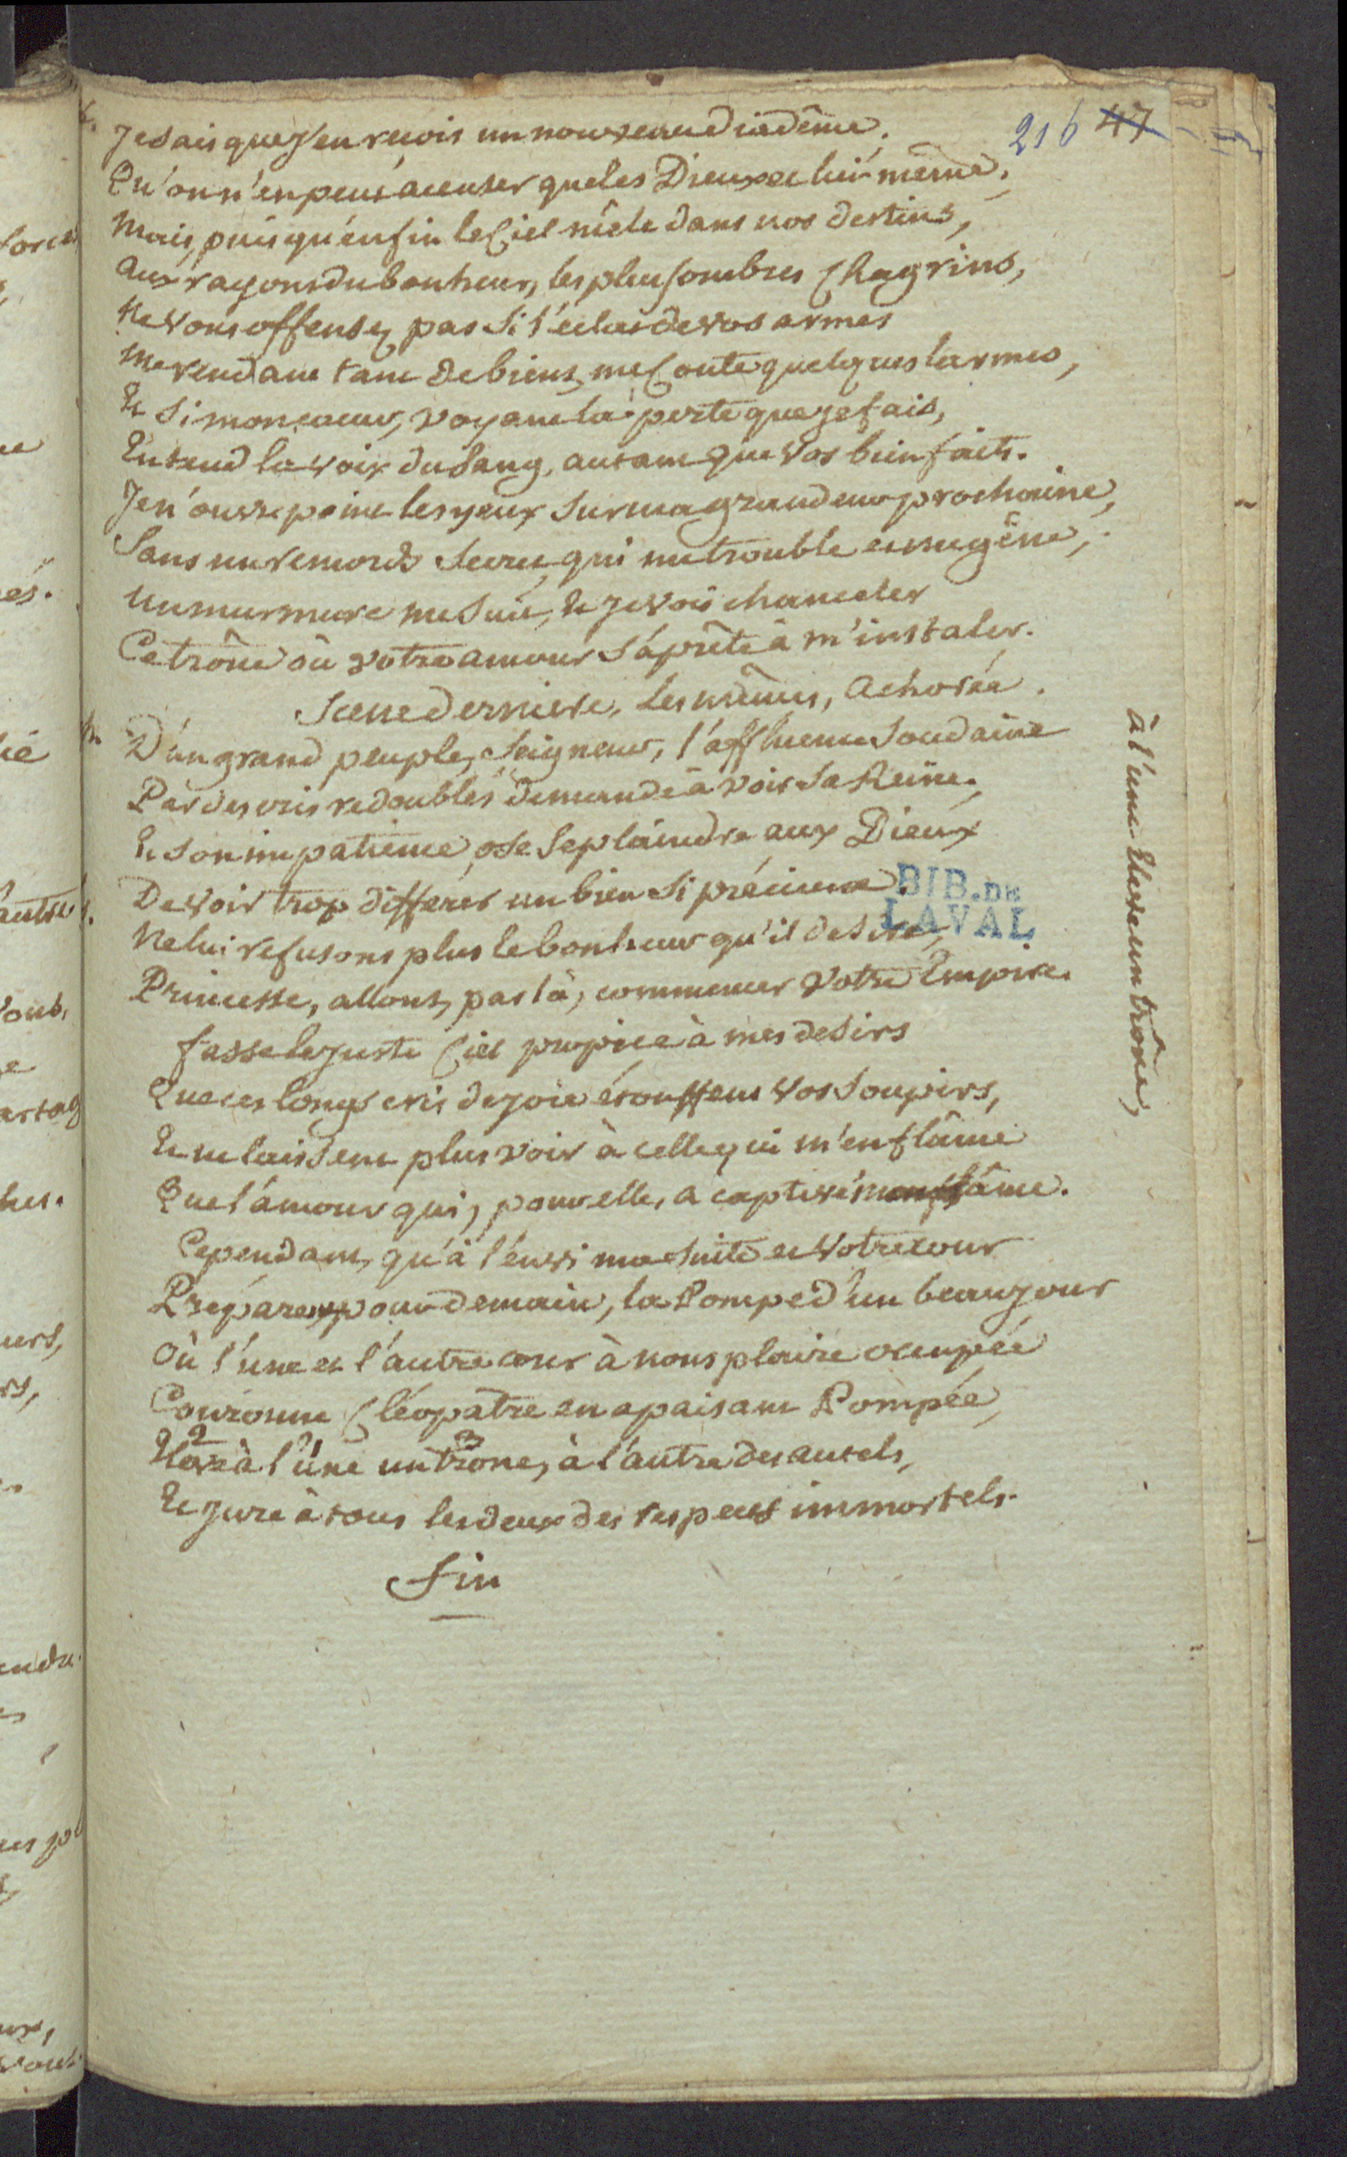 216 47
Je sais que j'en reçois un nouveau diadême,
Qu'on n'en peut acuser que les Dieux et lui-même,
Mais, puis qu'enfin le Ciel mêle dans nos destins,
Aux rayons du bonheur, les plus sombres Chagrins,
Ne vous offensez pas si l'éclat de vos armes
Me rendant tant de biens, me Coute quelques larmes,
Et si mon cœur, voyant la perte que je fais,
Entend la voix du sang, autant que vos bienfaits.
Je n'ouvre point les yeux sur ma grandeur prochaine,
Sans un remords secret, qui me trouble et me gêne,
Un murmure me suit, et je vois chanceler
Ce trône où votre amour s'aprête à m'instaler.
Scene derniere, les mêmes, Achorée.
D'un grand peuple, Seigneur, l'affluence soudaine
Par des cris redoublés demande à voir sa Reine,
Et son impatience ose se plaindre aux Dieux
De voir trop différer un bien si précieux.
BIB. DE
LAVAL
Ne lui refusons plus le bonheur qu'il desire,
Princesse, allons, par là, commencer votre Empire.
fasse le juste Ciel propice à mes desirs
Que ces longs cris de joie étouffent vos soupirs,
Et ne laissent plus voir à celle qui m'enflâme
Que l'amour qui, pour elle, a captivé mon âme.
Cependant, qu'à l'envi ma suite et votre cour
Prépare pour demain, la Pompe d'un beau jour
Où l'une et l'autre cour à nous plaire ocupée
Couronne Cléopatre en apaisant Pompée,
2 1 3
Eleve à l'une un trone, à l'autre des autels,
Et jure à tous les deux des respects immortels.
fin
à l'une Eleve un trône,